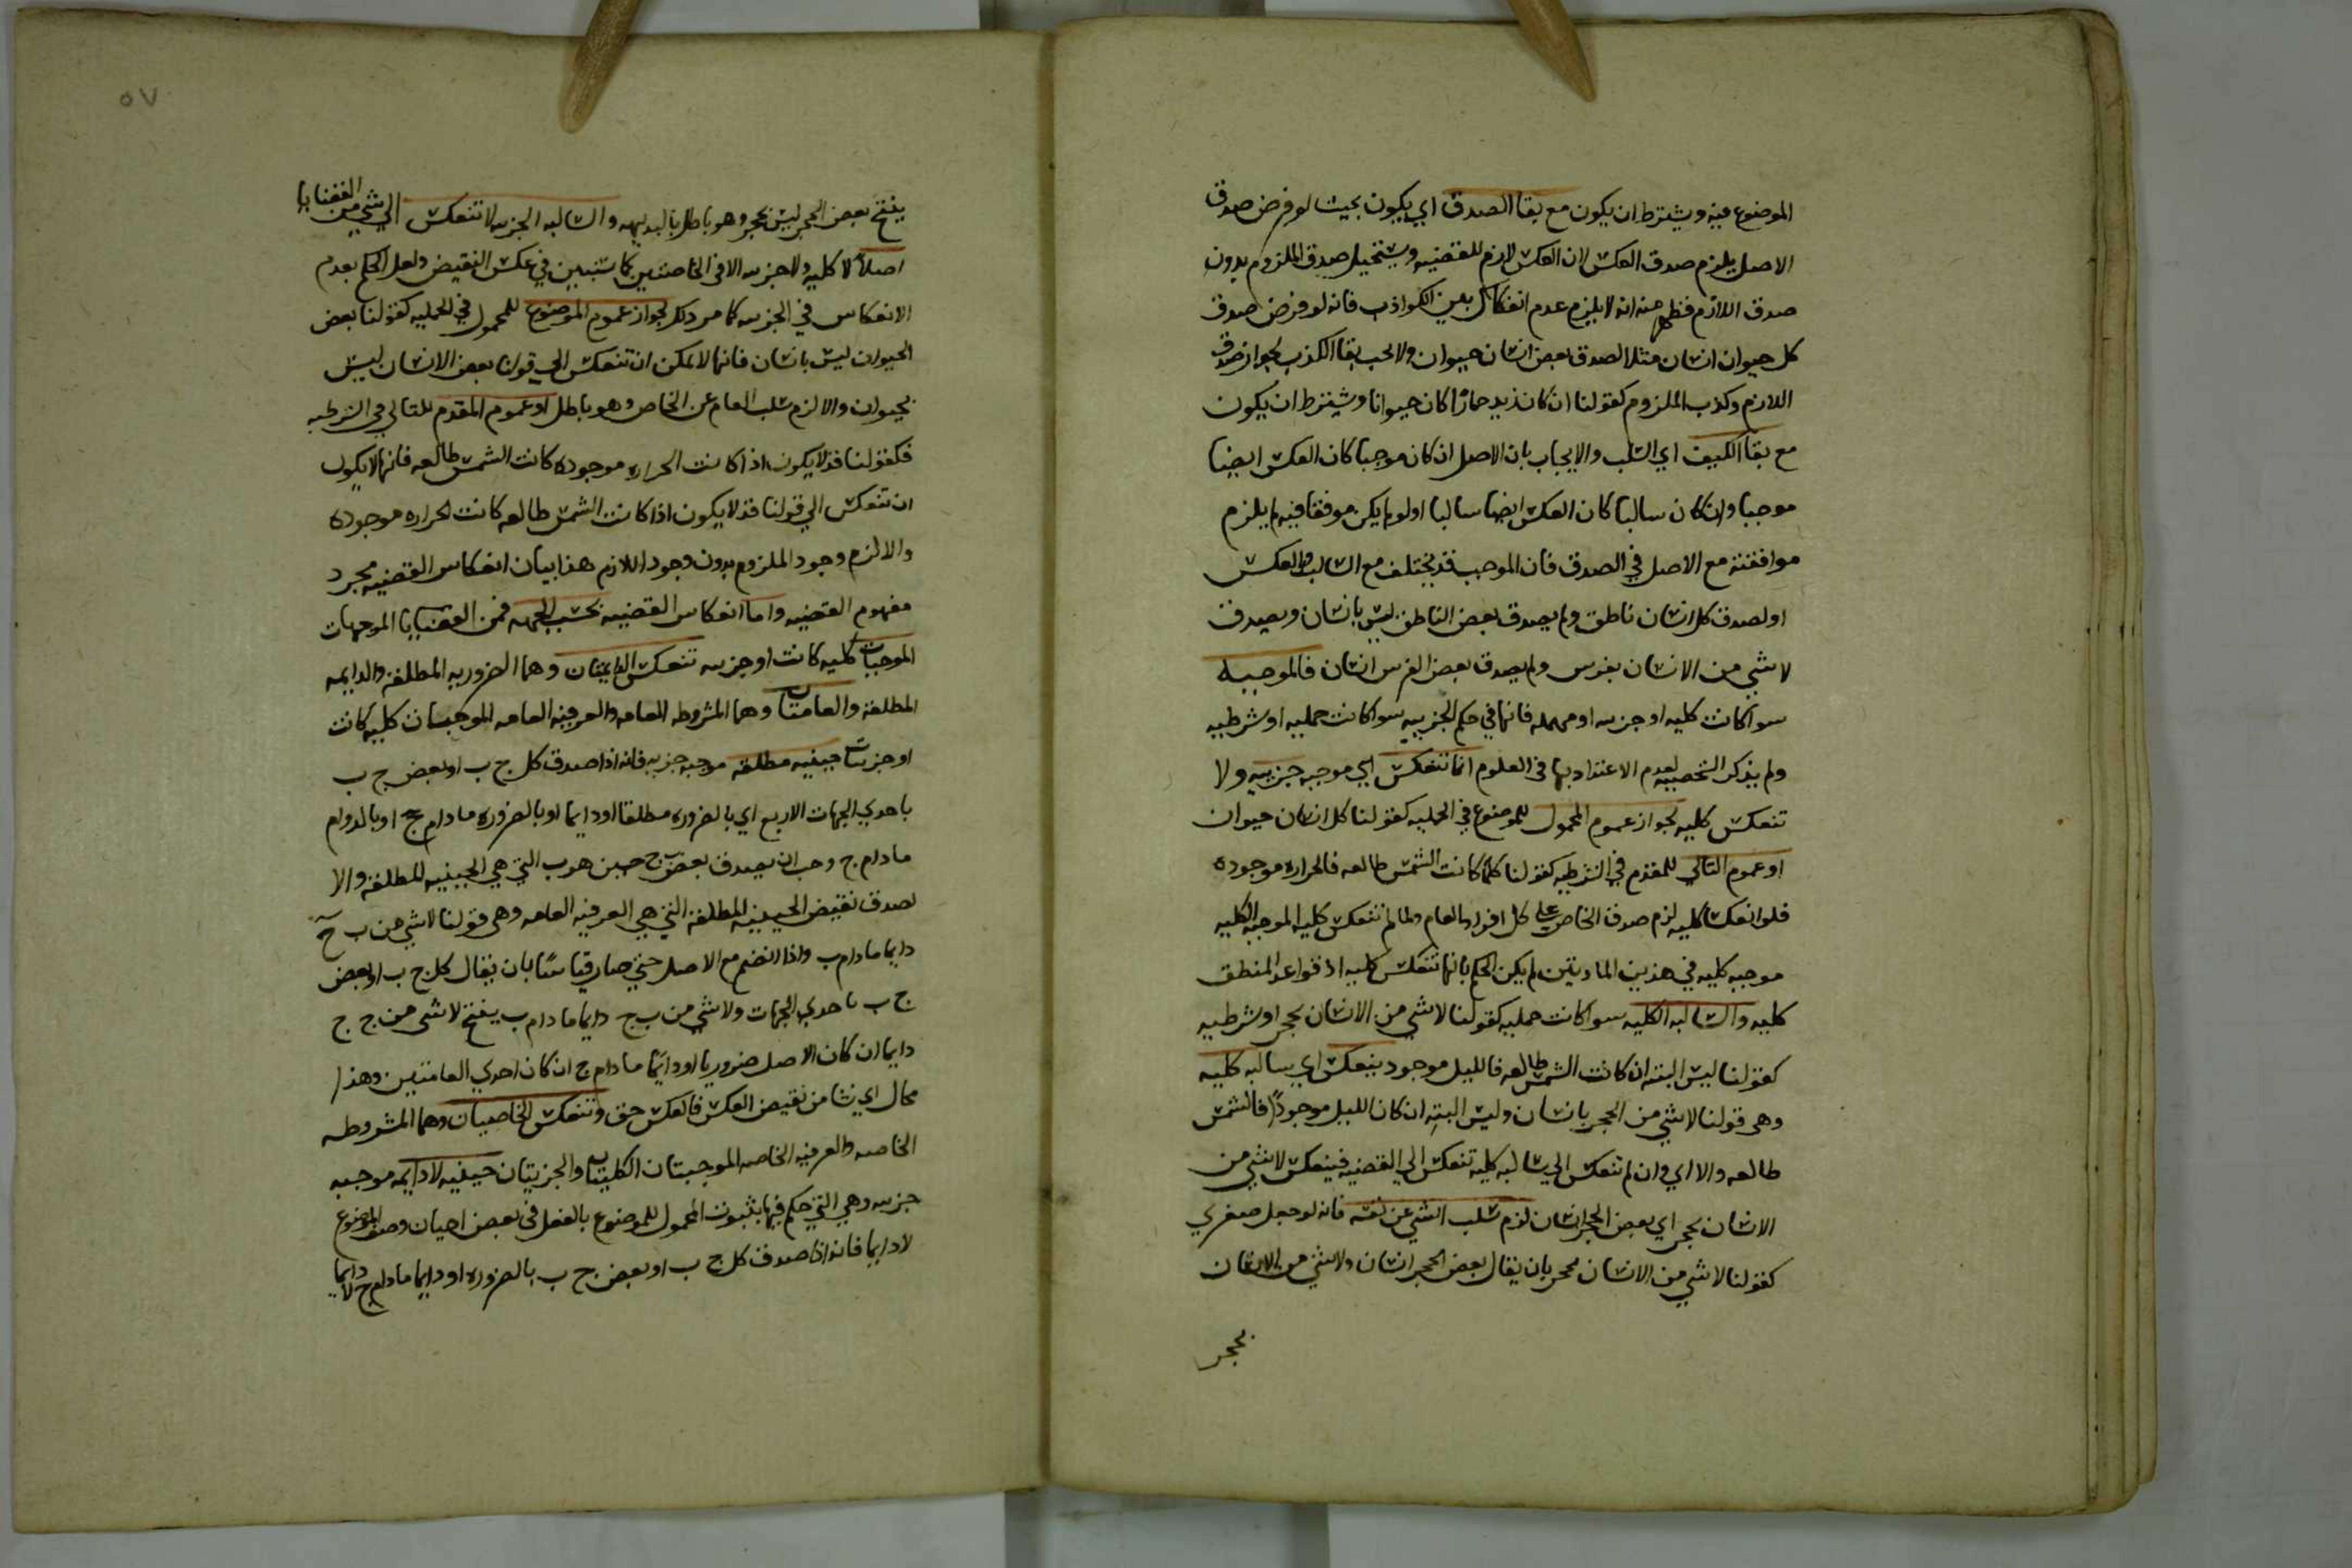 الموضوع فيه ويشترط ان يكون مع بقا الصدق اي يكون بحيث لو فرض صدق
الاصل يلزم صدق العكس لان العكس لازم للقضيه ويستحيل صدق الملزوم بدون
صدق اللازم فظهر منه انه لا يلزم عدم انعكاس بعض الكواذب فانه لو فرض صدق
كل حيوان انسان مثلا لصدق بعض انسان حيوان ولا يجب بقا الكذب لجواز صدق
اللازم وكذب الملزوم كقولنا ان كان زيد حمارا كان حيوانا ويشترط ان يكون
مع بقا الكيف اي السلب والايجاب بان الاصل ان كان موجبا كان العكس ايضا
موجبا وان كان سالبا كان العكس ايضا سالبا اولو لم يكن موفقا فيه لم يلزم
موافقته مع الاصل في الصدق فان الموجب قد يختلف مع السالب والعكس
او لصدق كل انسان ناطق ولم يصدق بعض الناطق ليس بانسان ويصدق
لا شي من الانسان بفرس ولم يصدق بعض الفرس انسان فالموجبه
سوا كانت كليه او جزيه او مهمله فانها في حكم الجزييه سوا كانت حمليه او شرطيه
ولم يذكر الشخصيه لعدم الاعتداد بها في العلوم انما تنعكس الي موجبه جزييه ولا
تنعكس كليه لجواز عموم المحمول للموضوع في الحمليه كقولنا كل انسان حيوان
او عموم التالي للمقدم في الشرطيه كقولنا كلما كانت الشمس طالعه فالحراره موجوده
فلو انعكسا كليه لزم صدق الخاص علي كل افراد العام ولما لم تنعكس كليه الموجبه الكليه
موجبه كليه في هذين المادتين لم يكن الحكم بانها تنعكس كليه اذ قواعد المنطق
كليه والسالبه الكليه سوا كانت حمليه كقولنا لا شي من الانسان بحجر او شرطيه
كقولنا ليس البته ان كانت الشمس طالعه فالليل موجود ينعكس اي سالبه كليه
وهي قولنا لا شي من الحجر بانسان وليس البته ان كان الليل موجودا فالشمس
طالعه والا اي وان لم تنعكس الي سالبه كليه تنعكس الي القضيه فينعكس لا شي من
الانسان بحجر اي بعض الحجر انسان لزم سلب الشي عن نفسه فانه لو جعل صغري
كقولنا لا شي من الانسان بحجر بان يقال بعض الحجر انسان ولا شي من الانسان
بحجر
٥٧
ينتج بعض الحجر ليس بحجر وهو باطل بالبديهه والسالبه الجزييه لا تنعكس الي شي من القضايا
اصلا لا كليه ولا جزيه الا في الخاصتين كما ستبين في عكس النقيض ولعل الحكم بعدم
الانعكاس في الجزيه كما مر ذلك لجواز عموم الموضوع للمحمول في الحمليه كقولنا بعض
الحيوان ليس بانسان فانها لا يمكن ان تنعكس الي قولنا بعض الانسان ليس
بحيوان والا لزم سلب العام عن الخاص وهو باطل او عموم المقدم للتالي في الشرطيه
فكقولنا قد لا يكون اذا كانت الحراره موجوده كانت الشمس طالعه فانها لا يكون
ان تنعكس الي قولنا قد لا يكون اذا كانت الشمس طالعه كانت الحراره موجوده
والا لزم وجود الملزوم بدون وجود اللازم هذا بيان انعكاس القضيه بمجرد
مفهوم القضيه واما انعكاس القضيه بحسب الجهه فمن القضايا الموجهات
الموجبات كليه كانت او جزيه تنعكس الدايمتان وهما الضروريه المطلقه والدايمه
المطلقه والعامتان وهما المشروطه العامه والعرفيه العامه الموجبتان كليه كانت
او جزييتان حينيه مطلقه موجبه جزيه فانه اذا صدق كل ج ب او بعض ج ب
باحدي الجهات الاربع اي بالضروره مطلقا او دايما او بالضروره ما دام ج او بالدوام
ما دام ج وجب ان يصدق بعض ب ج حين هو ب التي هي الحينيه المطلقه والا
لصدق نقيض الحينيه المطلقه التي هي العرفيه العامه وهي قولنا لا شي من ب ج
دايما ما دام ب واذا انضم مع الاصل حتي صار قياسا بان يقال كل ج ب او بعض
ج ب باحدي الجهات ولا شي من ب ج دايما ما دام ب ينتج لا شي من ج ج
دايما ان كان الاصل ضروريا او دايما ما دام ج ان كان احدي العامتين وهذا
محال اي نشا من نقيض العكس فالعكس حق وتنعكس الخاصيتان وهما المشروطه
الخاصه والعرفيه الخاصه الموجبتان الكليتان والجزيتان حينيه لا دايمه موجبه
جزيه وهي التي حكم فيها بثبوت المحمول للموضوع بالفعل في بعض احيان وصف الموضوع
لا دايما فانه اذا صدق كل ج ب او بعض ج ب بالضروره او دايما ما دام ج لا دايما